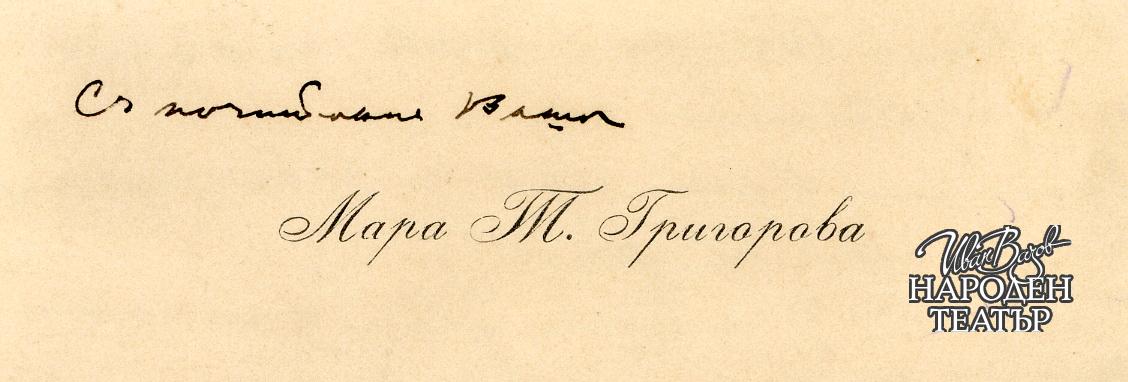 Съ почитание Ваша
Мара Т. Григорова
Иван Вазов
НАРОДЕН
ТЕАТЪР